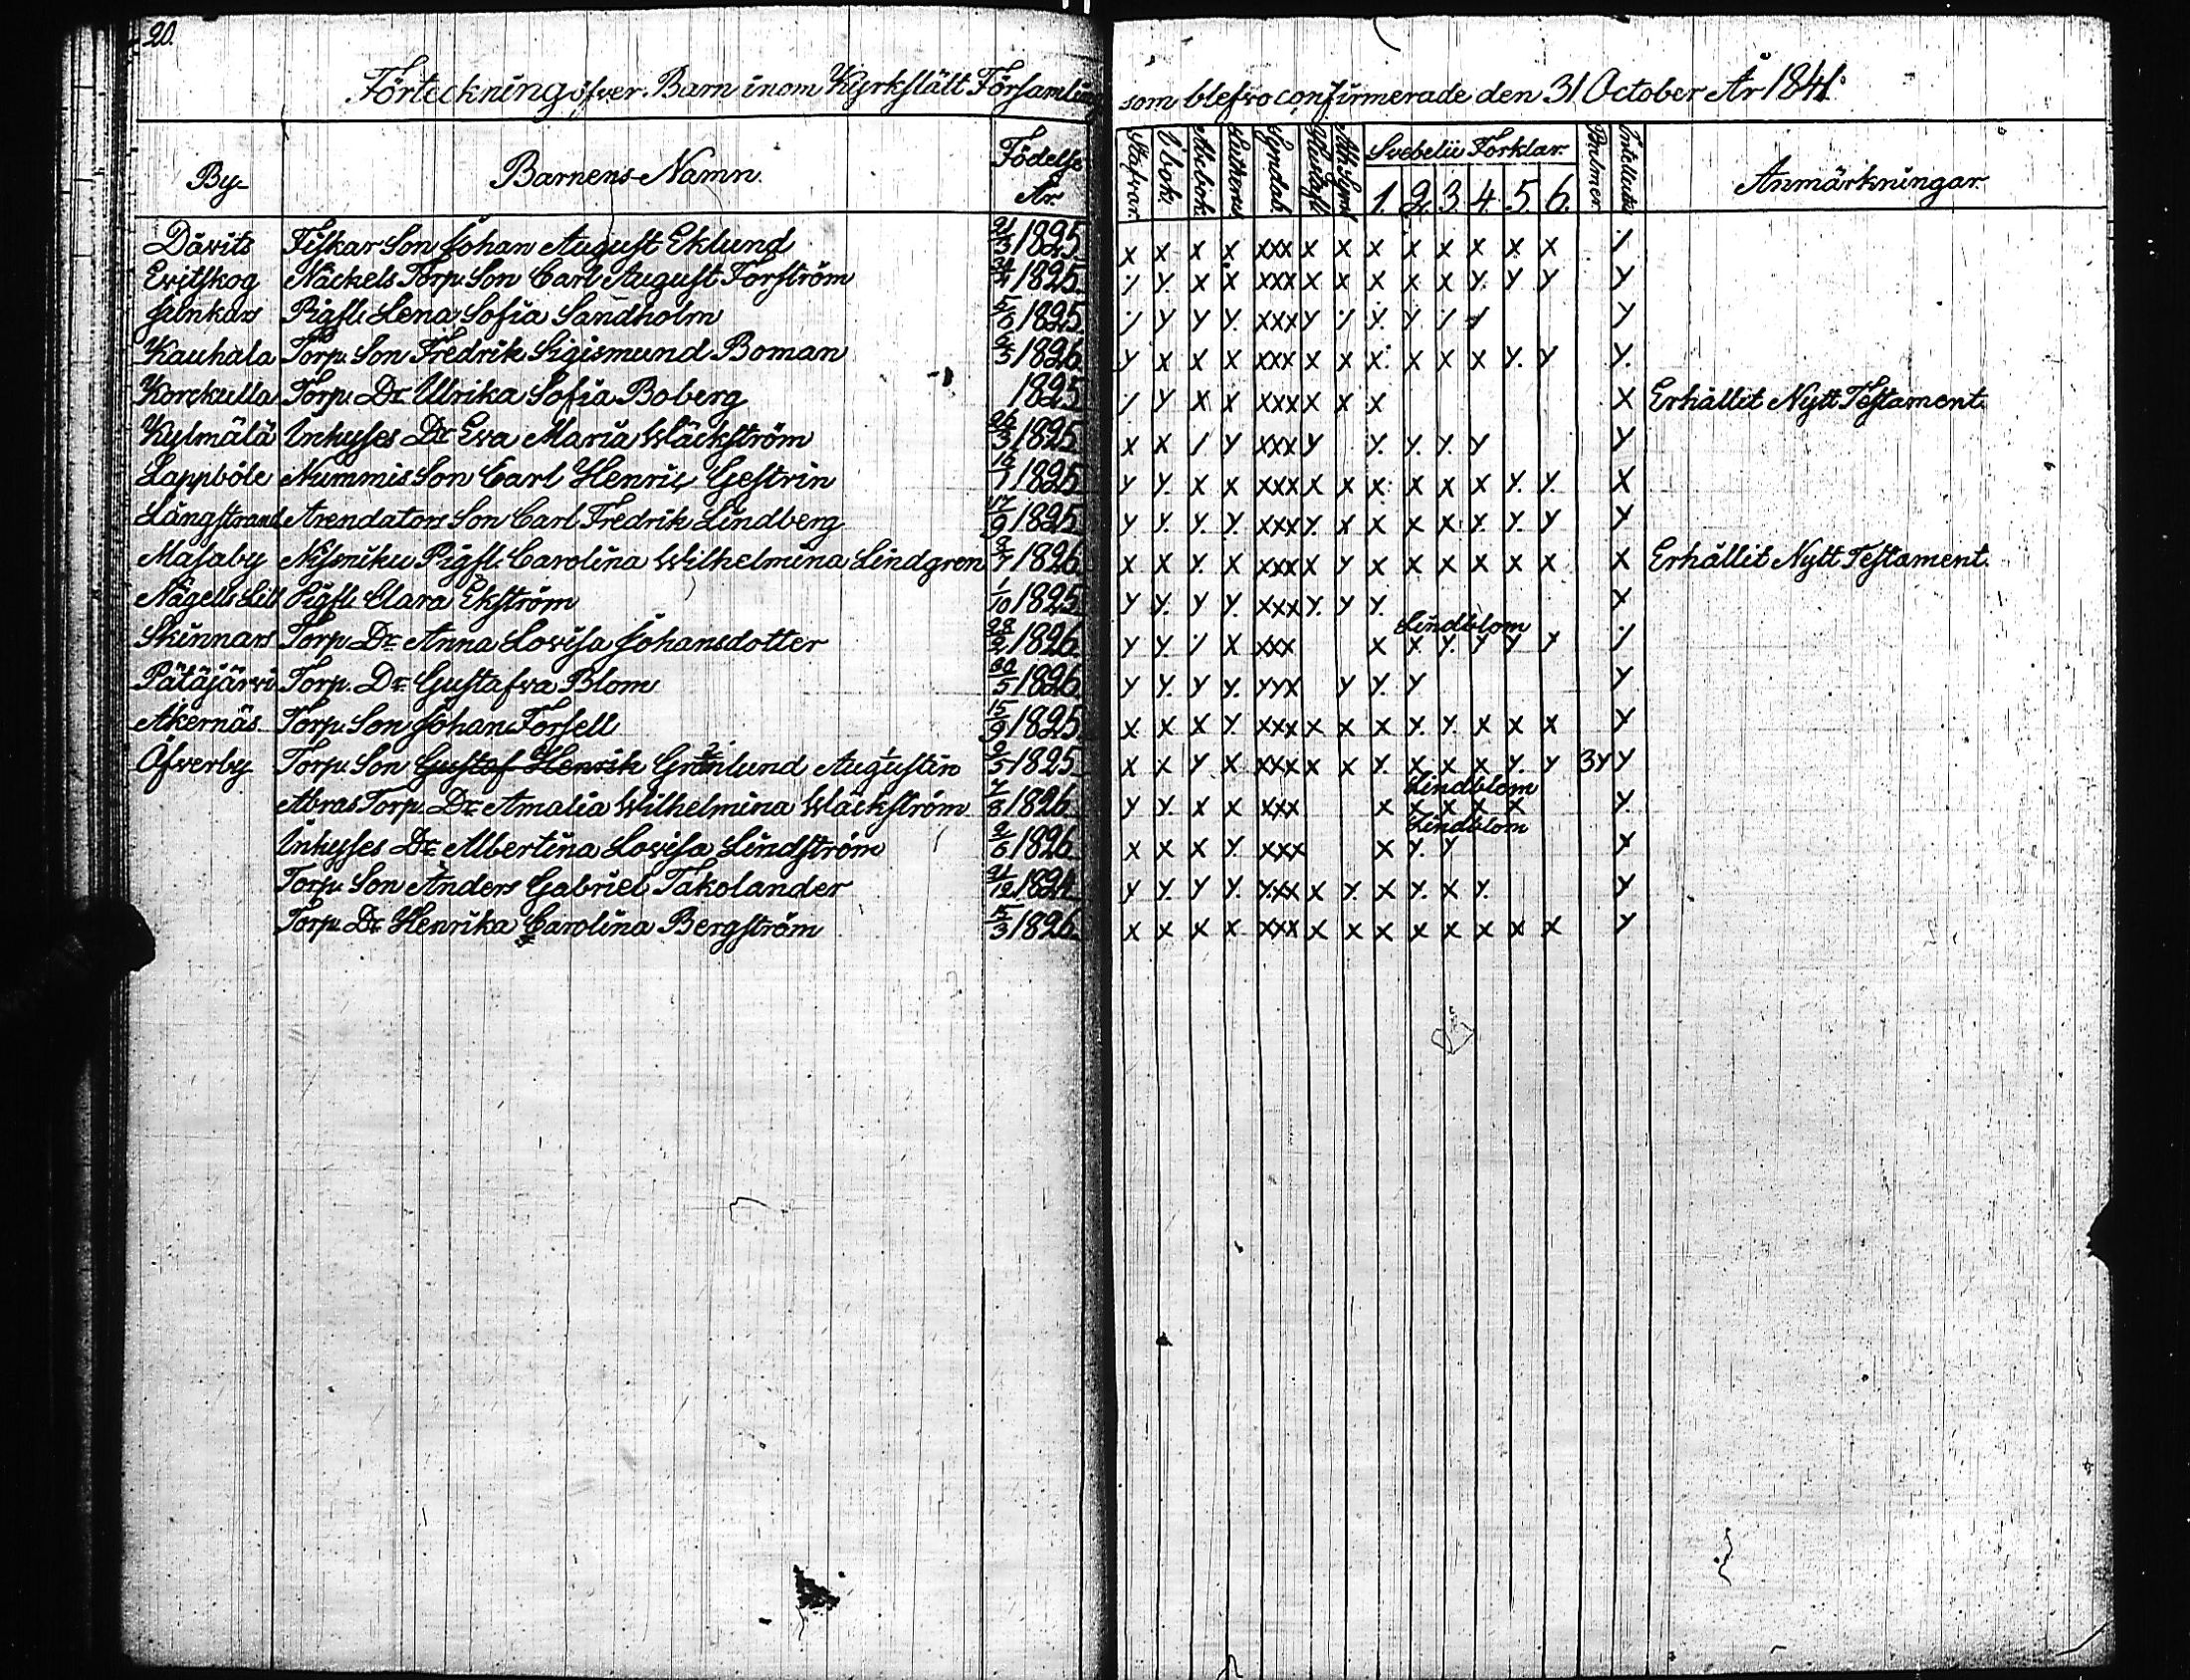 20.
Förteckning öfwer Barn inom Kyrkslätt Församling som blefwo confirmerade den 31 October År 1841.
By Barnens Namn. Födelse År Stafvar. Abebork. Luthers Syndab. Hustafl. Ath. Symb. Svebelii Förklar. 1. 2. 3. 4. 5. 6. Psalmer. Anmärkningar.
Däwits Fiskar Son Johan August Eklund 21/3 1825 x x x x xxx x x x x x x x x /
Evitskog Näckels Torp. Son Carl August Forström 1825 / y. x x xxx x x x x x y. y y y
Junkars Pigfl. Lena Sofia Sandholm 1825 / y y y. xxx y / y. y / / y
Kauhala Torp. Son Fredrik Sigismund Boman 1826 y x x x xxx x x x. x x x y. y y.
Korckulla Torp. Dr Ulrika Sofia Boberg 1825 / y x x xxx x x x x Erhållit Nytt Testament.
Kylmälä Inhyses Dr Ewa Maria Wäckström 26/3 1825 x x / y xxx y y. y. y. y y
Lappböle Nummis Son Carl Henric Gestrin 1825 y y. x x xxx x x x. x x x y. y. x
Långstrand Arendators Son Carl Fredrik Lindberg 17/9 1825 y y. y. y. xxx y. x x x x y. y. y y
Masaby Nissniku Pigfl. Carolina Wilhelmina Lindgren 1826 x x y. x xxx x y x x x x x x x Erhållit Nytt Testament.
Nägels Lill Pigfl. Clara Ekström 1/10 1825 y y. y y. xxx y. y y. x
Skinnars Torp. Dr Anna Lovisa Johansdotter 28/2 1826 y y. / x xxx x x y. y y y /
Lindblom
Pätäjärwi Torp. Dr Gustafva Blom 30/5 1826 y y. y y. yyx y y. y y
Åkernäs Torp. Son Johan Forsell 15/9 1825 x x x y. xxx x x x y. y. x x x y
Öfwerby Torp. Son Gustaf Henrik Grönlund Augustin 2/5 1825 x x y x xxx x x y. x x x y. y 3y y
Abras Torp. Dr Amalia Wilhelmina Wäckström 1826 y y. x x xxx x x x x x y.
Lindblom
Inhyses Dr Albertina Lovisa Lindström 2/6 1826 x x x y. xxx x y. y x
Lindblom
Torp. Son Anders Gabriel Takolander 21/12 1824 y y. y y. xxx x y. x y. x y. y
Torp. Dr Henrika Carolina Bergström 1826 x x x x xxx x x x x x x x x y